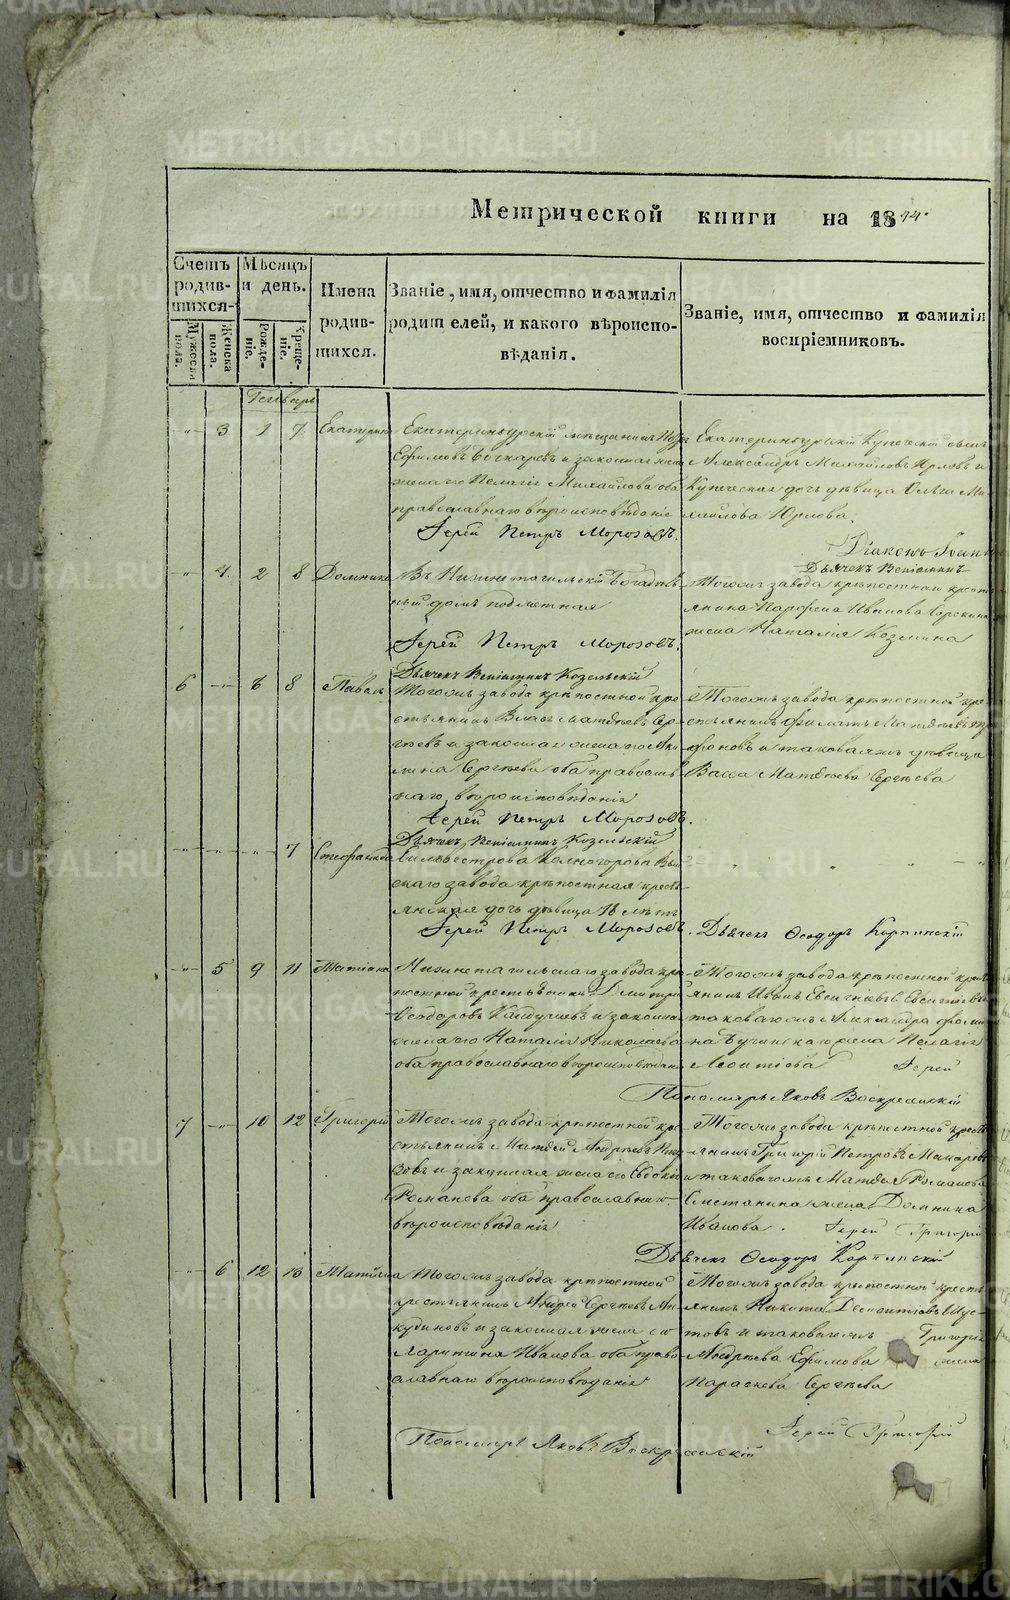 METRIKI.GASO-URAL.RU
Метрической книги на 1844.
Счетъ родившихся.
Мѣсяцъ и день.
Имена родившихся.
Званіе, имя, отчество и фамилія родителей, и какого вѣроисповѣданія.
Званіе, имя, отчество и фамилія воспріемниковъ.
Мужеска пола.
Женска пола.
Рожденіе.
Крещеніе.
Генварь
3 1 7 Екатерина
Екатеринбургскій мѣщанинъ
Ефимовъ Бочкаревъ и законная
жена его Пелагія Михайлова оба
православнаго вѣроисповѣданія
Іерей Петръ Морозовъ.
Екатеринбургскій Купеческій сынъ
Александръ Михайловъ Юрловъ и
Купеческая дочь дѣвица Ольга Ми
хайлова Юрлова.
Діаконъ Іоанн
Дьячекъ Веніаминъ
4. 2 8 Домника
Въ Нижнетагильскій Богадѣль
ный домъ подметная
Іерей Петръ Морозовъ.
Дьячекъ Веніаминъ Козельскій
Тогожъ завода крѣпостнаго крест
янина Парфена Иванова Сорокина
жена Наталія Козмина
6 6 8 Павелъ
Тогожъ завода крѣпостной кре
стьянинъ Власъ Матвѣевъ Сер
гѣевъ и законная жена его Аку
лина Сергѣева оба православ
наго вѣроисповѣданія
Іерей Петръ Морозовъ.
Дьячекъ Веніаминъ Козельскій
Тогожъ завода крѣпостной кре
стьянинъ Филатъ Матвѣевъ
и таковаяжъ дѣвица
Васса Матвѣева Сергѣева
7 Стефанида
Сильвестрова Колногорова Вый
скаго завода крѣпостная кресть
янская дочь дѣвица 18 лѣтъ
Іерей Петръ Морозовъ. Дьячекъ Ѳеодоръ Карпинскій
5 9 11 Татіана
Нижнетагильскаго завода крѣ
постной крестьянинъ Димитрій
Ѳеодоровъ и законная
жена его Наталія Николаева
оба православнаго вѣроисповѣданія
Тогожъ завода крѣпостной крест
янинъ Иванъ Евсигніевъ
таковагожъ Александра
жена Пелагія
Леонтіева Іерей
Пономарь Яковъ Воскресенскій
7 10 12 Григорій
Тогожъ завода крѣпостной кре
стьянинъ Матвей Андреевъ
и законная жена его Евдокія
Романова оба православнаго
вѣроисповѣданія
Тогожъ завода крѣпостной крест
янинъ Григорій Петровъ Макаров
и таковагожъ Матвея Романова
Сметанина жена Домника
Иванова. Іерей Григорій
Дьячекъ Ѳеодоръ Карпинскій
6 12 13 Татіана
Тогожъ завода крѣпостной
крестьянинъ Андрей Сергѣевъ Ан
кудиновъ и законная жена его
Харитина Иванова оба право
славнаго вѣроисповѣданія
Тогожъ завода крѣпостной крест
янинъ Никита Дементіевъ Шус
товъ и таковагожъ Григорія
Андреева Ефимова жена
Параскева Сергѣева
Іерей Григорій
Пономарь Яковъ Воскресенскій